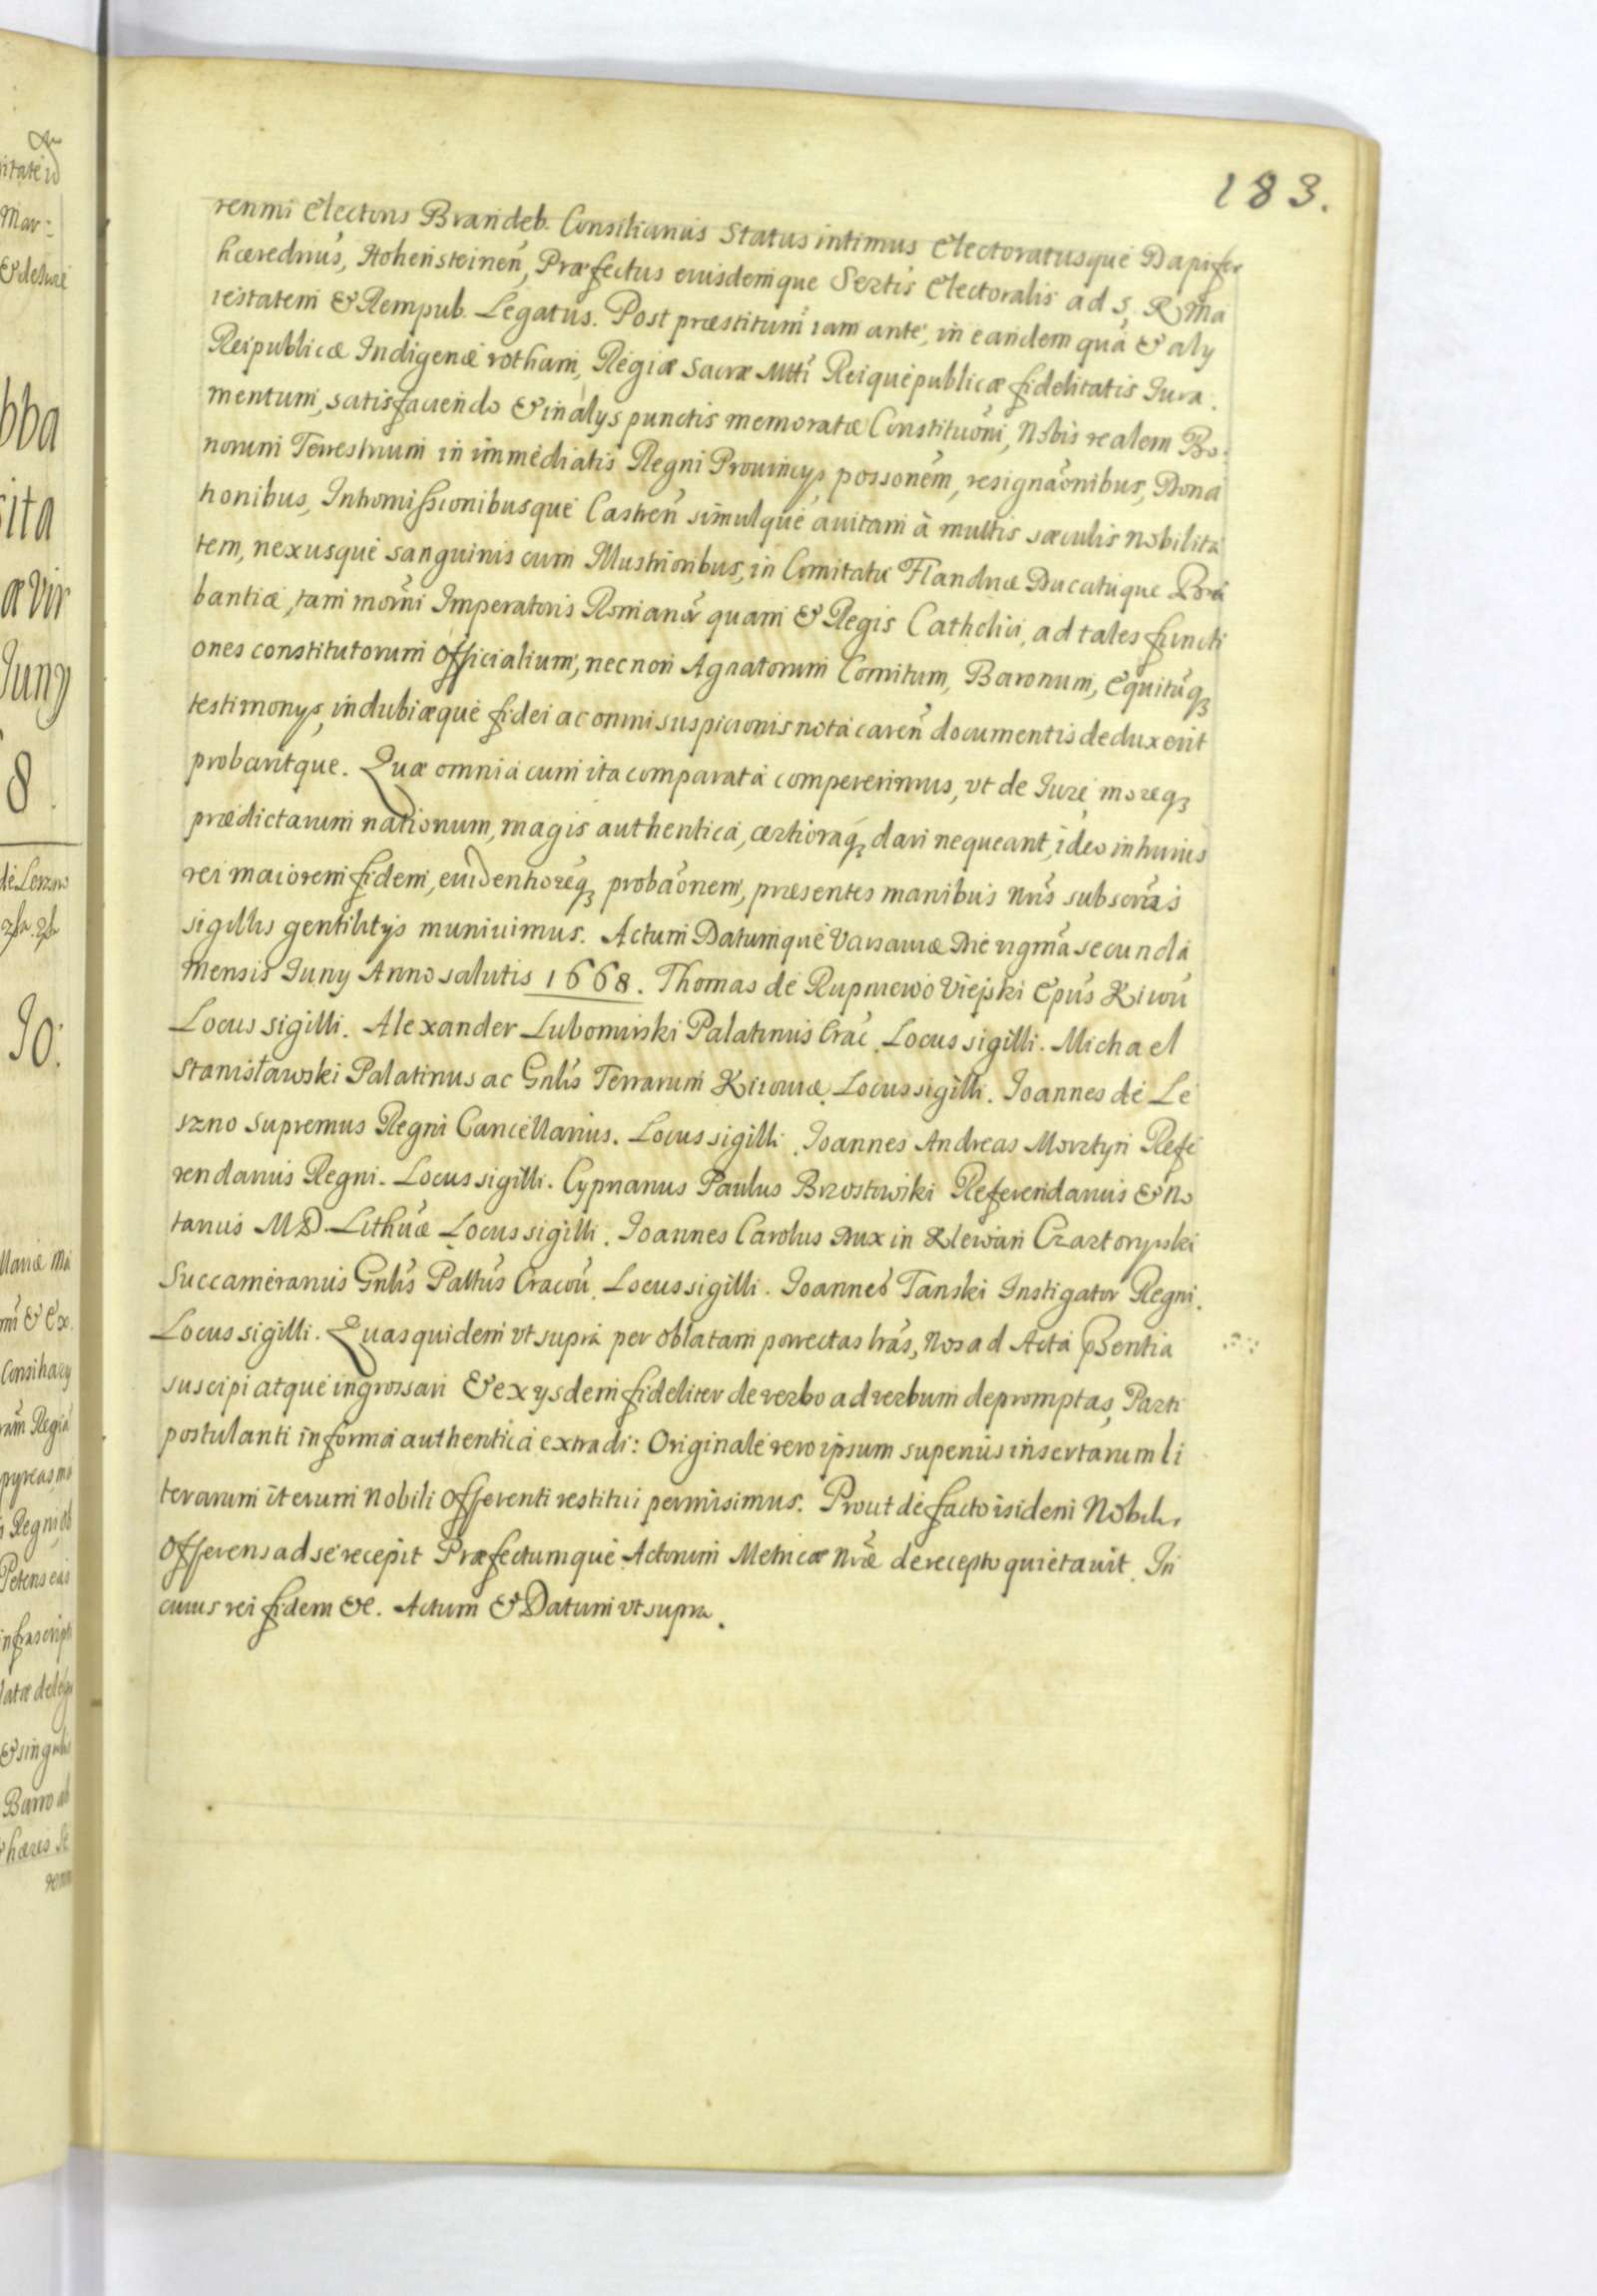 183.
renmi Electoris Brandeb. Consiliarius Status intimus Electoratusque Dapifer
hæređrius, Hohensteinen̄, Præfectus eiusdemque Sertis Electoralis ad S. R. Ma
iestatem & Rempub. Legatus. Post præstitum iam ante, in eandem qua & alij
Reipublicæ Indigenæ rotham, Regiæ Sacræ Mtti Reiquepublicæ fidelitatis Iura.
mentum, satisfaciendo & in alijs punctis memoratæ Constituōni, Nobis realem Bo-
norum Terrestrium in immediatis Regni Provincijs possonēm, resignāonibus, Dona
tionibus, Intromissionibusque Castren̄ simulque avitam à multis sæculis nobilita
tem, nexusque sanguinis cum Illustrioribus, in Comitatu Flandriæ Ducatuque Bra
bantiæ, tam mor̄ni Imperatoris Romanor̄ quam & Regis Catholici, ad tales functi
ones constitutorum Officialium, necnon Agnatorum Comitum, Baronum, Equitūq3
testimonijs, indubiæque fidei ac omni suspicionis nota caren̄ documentis deduxerit
probaritque. Quæ omnia cum ita comparata compererimus, vt de Iure, moreq3
prædictarum nationum, magis authentica, certioraq3 dari nequeant, ideo in huius
rei maiorem fidem, evidentioreq3 probāonem, præsentes manibus nr̄is subscrās
sigillis gentilitijs munivimus. Actum Datumque Varsaviæ Die vigmā secunda
mensis Iunij Anno salutis 1668. Thomas de Rupniewo Viejski Epūs Kiioū
Locus sigilli. Alexander Lubomirski Palatinus Crac̄. Locus sigilli. Michael
Stanisławski Palatinus ac Gnl̄is Terrarum Kiioviæ. Locus sigilli. Ioannes de Le
szno Supremus Regni Cancellarius. Locus sigilli. Ioannes Andreas Morztyn Refe
rendarius Regni. Locus sigilli. Cyprianus Paulus Brzostowski Referendarius & No
tarius M. D. Lithūæ Locus sigilli. Ioannes Carolus Dux in Klewań Czartoryski
Succamerarius Gnl̄is Pallt̄us Cracoū. Locus sigilli. Ioannes Tanski Instigator Regni.
Locus sigilli. Quas quidem vt supra per oblatam porrectas lrās, Nos ad Acta Pn̄tia
suscipi atque ingrossari & ex ijsdem fideliter de verbo ad verbum depromptas, Parti
postulanti in forma authentica extradi: Originale vero ipsum superius insertarum li
terarum iterum Nobili Offerenti restitui permisimus. Prout de facto isidem Nobilis
Offerens ad se recepit Præfectumque Actorum Metricæ Nr̄æ de recepto quietavit. In
cuius rei fidem &c. Actum & Datum vt supra.